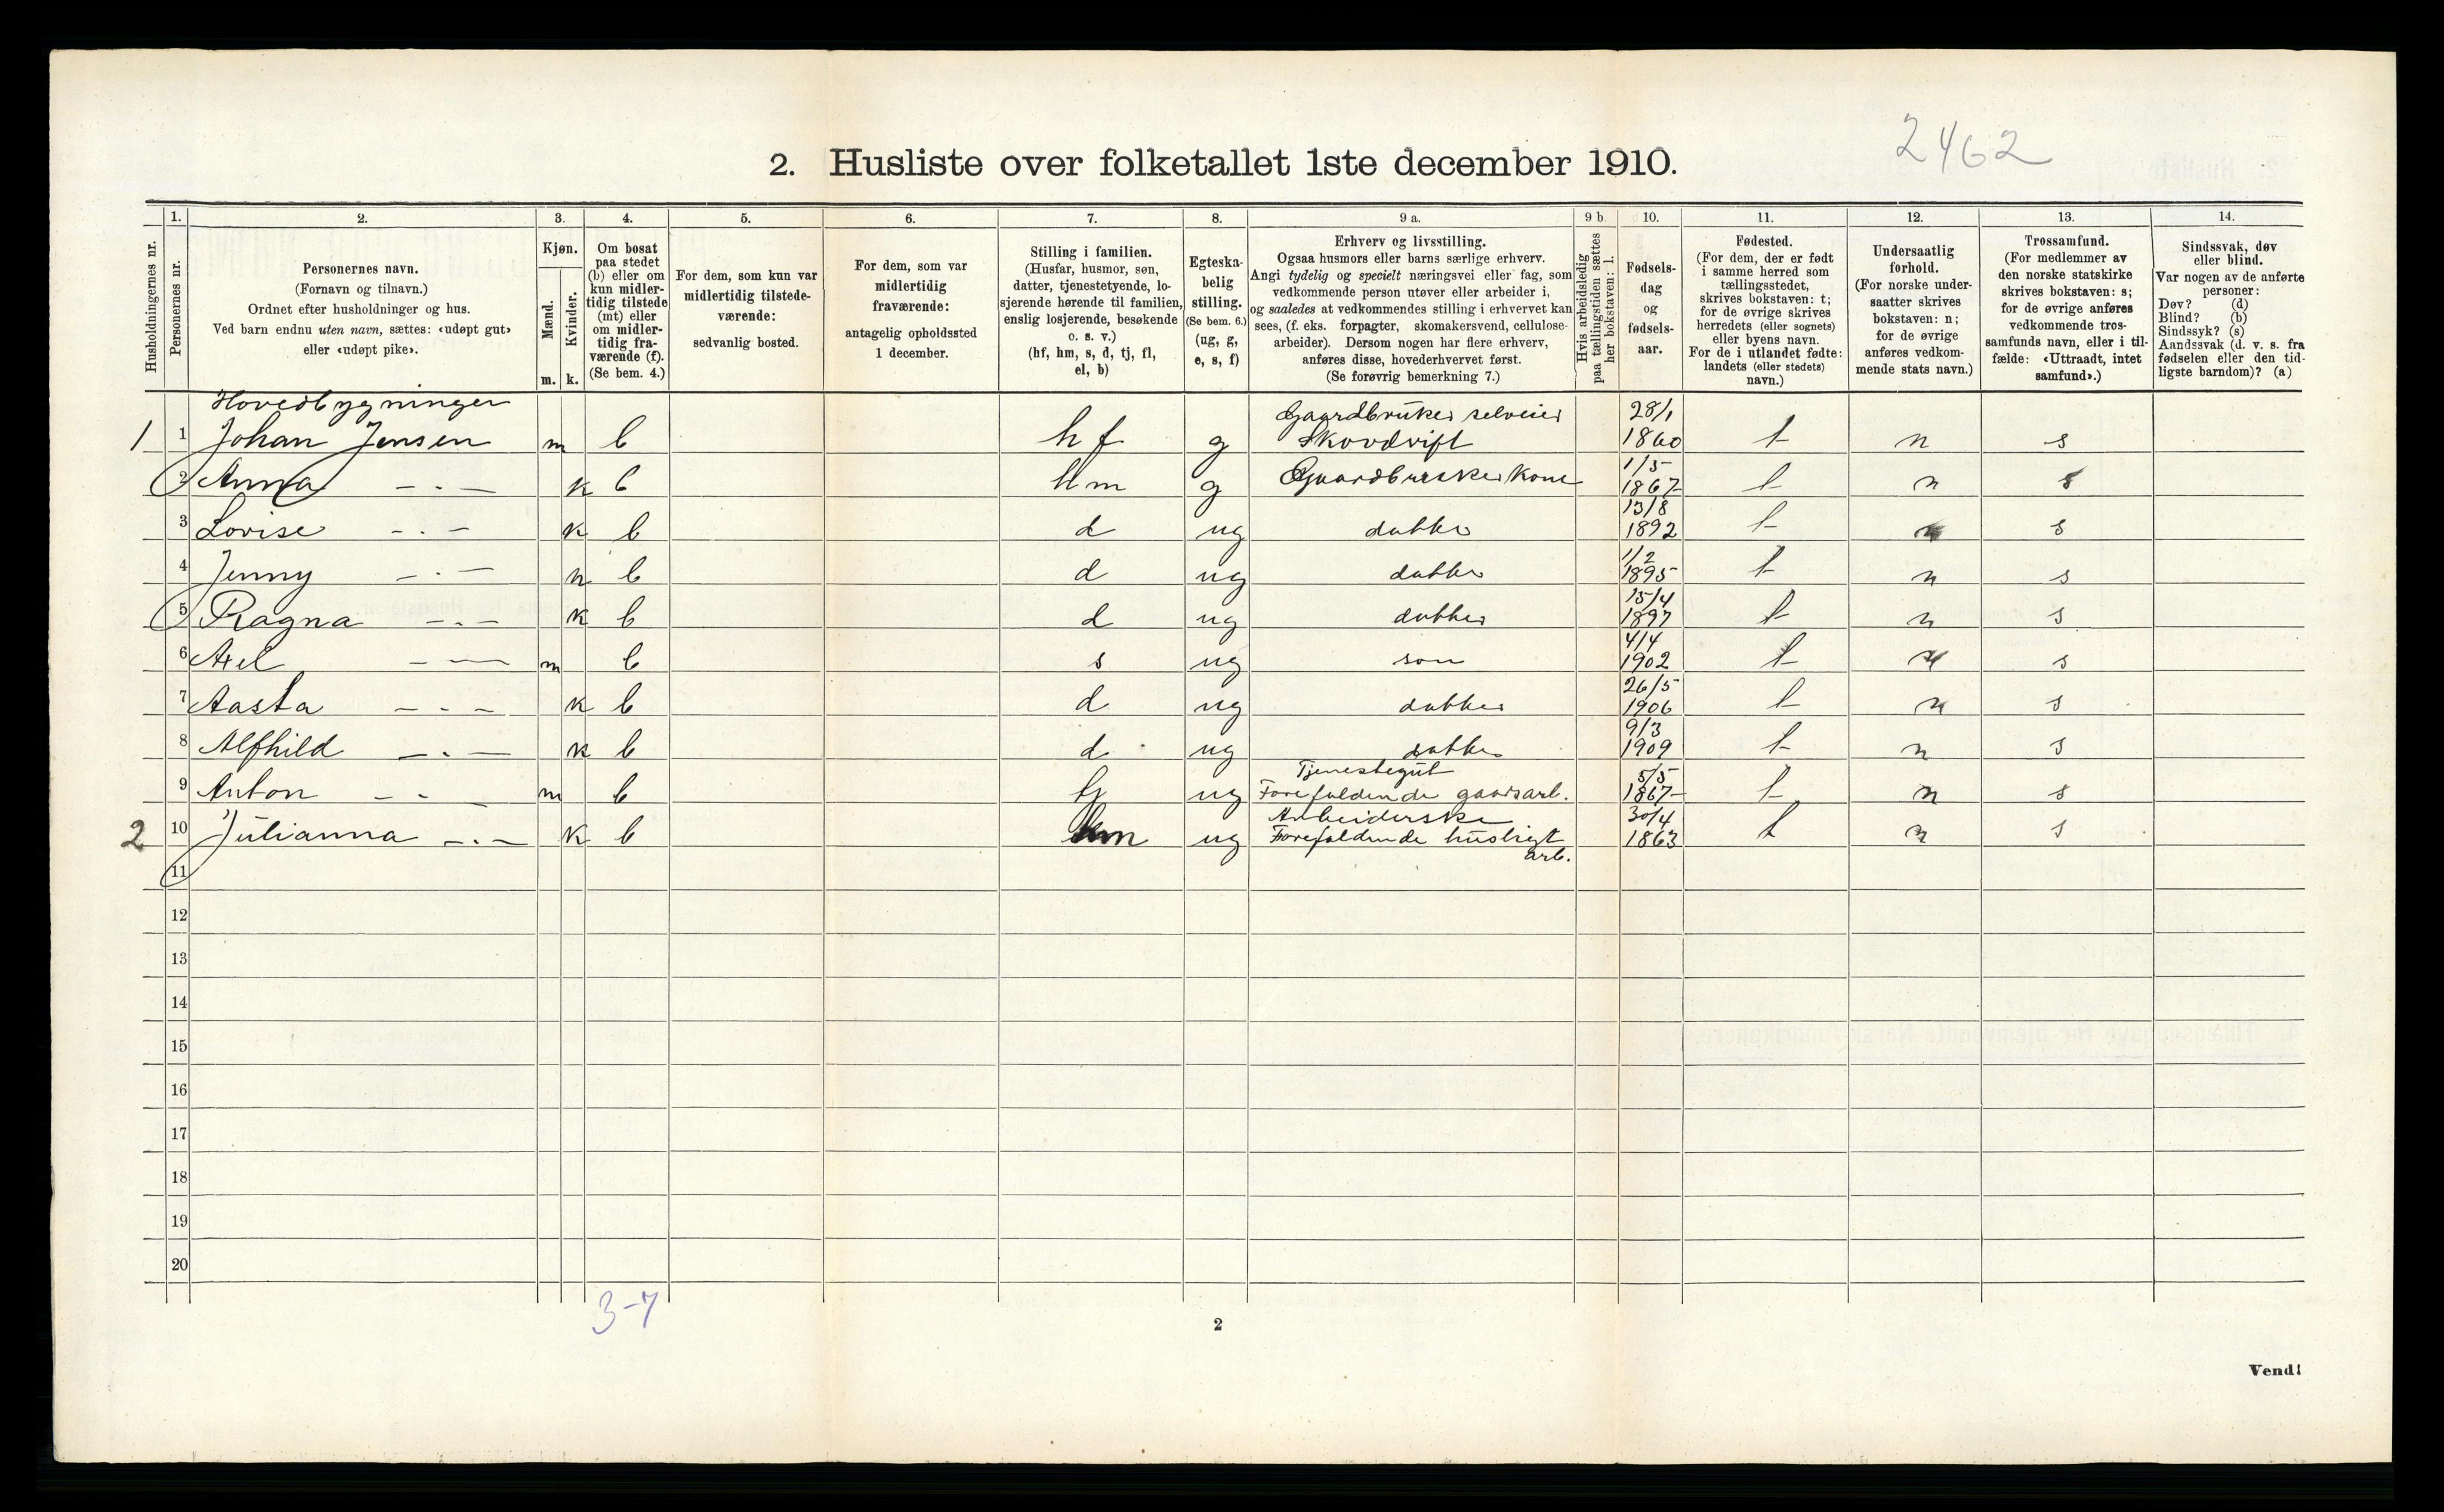 2462
2. Husliste over folketallet 1ste december 1910.
Husholdningernes nr.
1. Personernes nr.
2. Personernes navn.
(Fornavn og tilnavn.)
Ordnet efter husholdninger og hus.
Ved barn endnu uten navn, sættes: «udøpt gut»
eller «udøpt pike».
3. Kjøn.
Mænd. m.
Kvinder. k.
4. Om bosat
paa stedet
(b) eller om
kun midler-
tidig tilstede
(mt) eller
om midler-
tidig fra-
værende (f).
(Se bem. 4.)
5. For dem, som kun var
midlertidig tilstede-
værende:
sedvanlig bosted.
6. For dem, som var
midlertidig
fraværende:
antagelig opholdssted
1 december.
7. Stilling i familien.
(Husfar, husmor, søn,
datter, tjenestetyende, lo-
sjerende hørende til familien,
enslig losjerende, besøkende
o. s. v.)
(hf, hm, s, d, tj, fl,
el, b)
8. Egteska-
belig
stilling.
(Se bem. 6.)
(ug, g,
e, s, f)
9 a. Erhverv og livsstilling.
Ogsaa husmors eller barns særlige erhverv.
Angi tydelig og specielt næringsvei eller fag, som
vedkommende person utøver eller arbeider i,
og saaledes at vedkommendes stilling i erhvervet kan
sees, (f. eks. forpagter, skomakersvend, cellulose-
arbeider). Dersom nogen har flere erhverv,
anføres disse, hovederhvervet først.
(Se forøvrig bemerkning 7.)
9 b. Hvis arbeidsledig
paa tællingstiden sættes
her bokstaven: l.
10. Fødsels-
dag
og
fødsels-
aar.
11. Fødested.
(For dem, der er født
i samme herred som
tællingsstedet,
skrives bokstaven: t;
for de øvrige skrives
herredets (eller sognets)
eller byens navn.
For de i utlandet fødte:
landets (eller stedets)
navn.)
12. Undersaatlig
forhold.
(For norske under-
saatter skrives
bokstaven: n;
for de øvrige
anføres vedkom-
mende stats navn.)
13. Trossamfund.
(For medlemmer av
den norske statskirke
skrives bokstaven: s;
for de øvrige anføres
vedkommende tros-
samfunds navn, eller i til-
fælde: «Uttraadt, intet
samfund».)
14. Sindssvak, døv
eller blind.
Var nogen av de anførte
personer:
Døv? (d)
Blind? (b)
Sindssyk? (s)
Aandssvak (d. v. s. fra
fødselen eller den tid-
ligste barndom)? (a)
Hovedbygninger
Gaardbruker selveier 28/1
1 1 Johan Jensen m b hf g Skovdrift 1860 t n s
2 Anna - . - k b hm g Gaardbruskerkone 1/5 1867 t n s
3 Lovise - . - k b d ug datter 13/8 1892 t n s
4 Jenny - . - k b d ug datter 1/2 1895 t n s
5 Ragna - . - k b d ug datter 15/4 1897 t n s
6 Axel - - m b s ug son 4/4 1902 t n s
7 Aasta - - - k b d ug datter 26/5 1906 t n s
8 Alfhild - . - k b d ug datter 9/3 1909 t n s
Tjenestegut
9 Anton - - - m b tj ug Forefaldende gaardsarb. 5/5 1867 t n s
Arbeiderske
2 10 Julianna - . - k b hm ug Forefaldende husligt 30/4 1863 t n s
arb.
11
12
13
14
15
16
17
18
19
20
3-7
2
Vend!